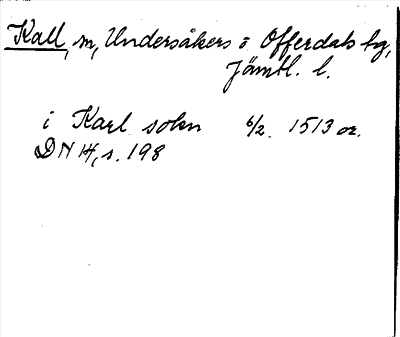 Kall, sn, Undersåkers o Offerdals tg,
Jämtl. l.
i Karl sokn 6/2 1513 or.
DN 14, s. 198